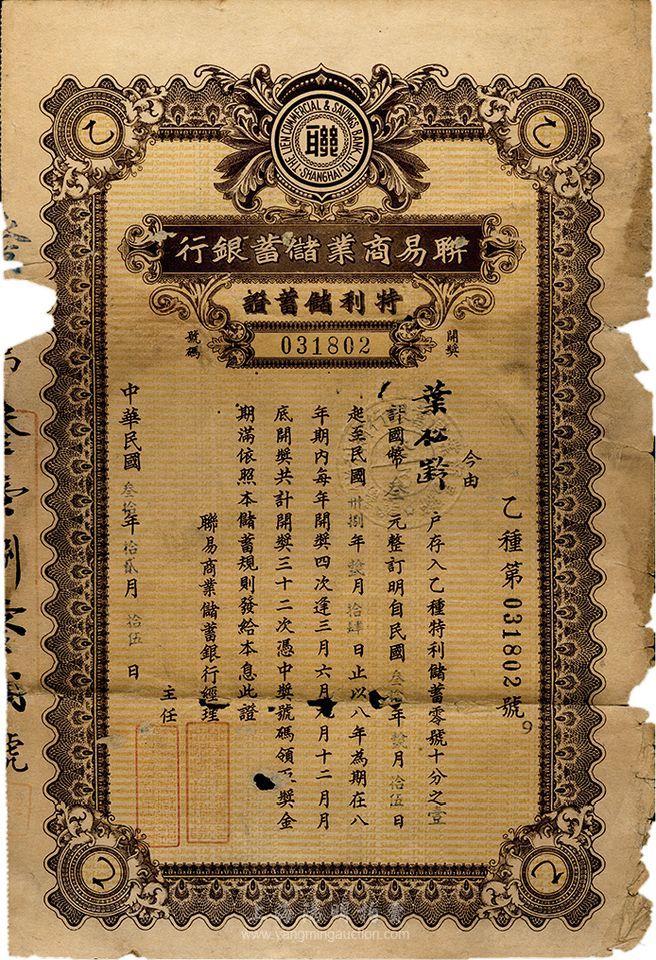 THE LIEN COMMERCIAL & SAVINGS BANK, LTD.
SHANGHAI
聯
乙
乙
聯易商業儲蓄銀行
特利儲蓄證
開獎
號碼
031802
乙種第031802號
9
今由
葉松齡
戶存入乙種特利儲蓄零號十分之壹
計國幣叁元整訂明自民國叁拾年拾月拾伍日
起至民國卅捌年拾月拾肆日止以八年為期在八
年期內每年開獎四次逢三月六月九月十二月月
底開獎共計開獎三十二次憑中獎號碼領取獎金
期滿依照本儲蓄規則發給本息此證
聯易商業儲蓄銀行經理
主任
中華民國叁拾年拾貳月拾伍日
號
乙
乙
www.yangmingauction.com